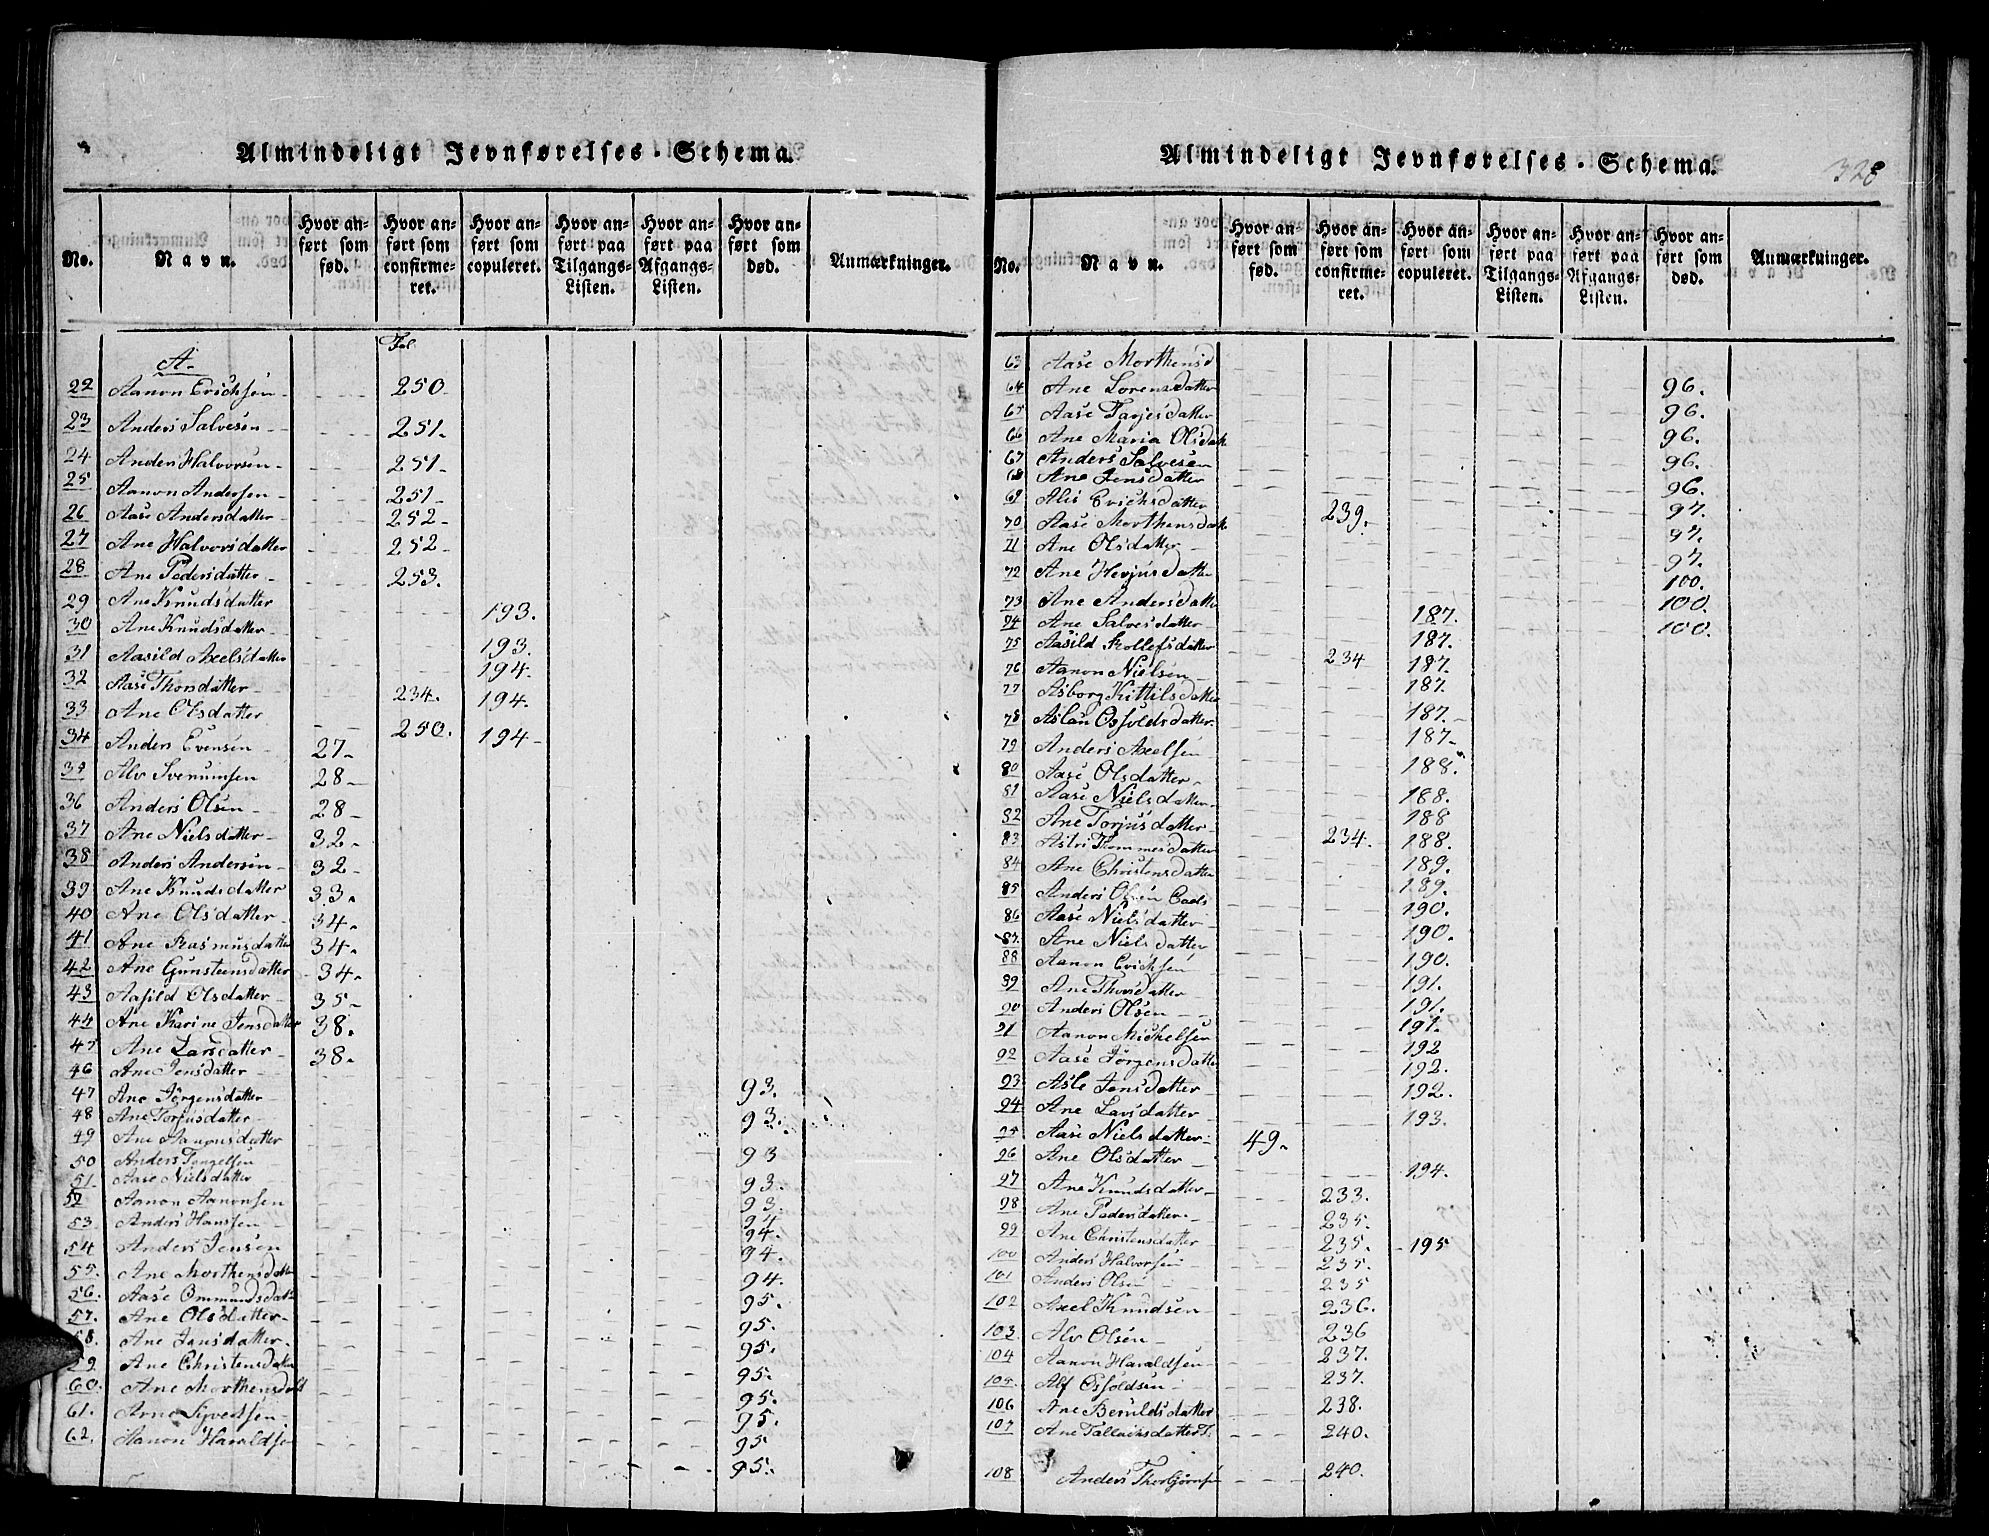 Almindeligt Jevnførelses-Schema.
No. Navn. Hvor anført som fød. Hvor anført som confirmeret. Hvor anført som copuleret. Hvor anført paa Tilgangs-Listen. Hvor anført paa Afgangs-Listen. Hvor anført som død. Anmærkninger.
Fol.
A.
22 Aanon Erichsen 250.
23 Anders Salvesen 251.
24 Anders Halvorsen 251
25 Aanon Andersen 251
26 Aase Andersdatter 252
27 Ane Halvorsdatter 252
28 Ane Pedersdatter 253.
29 Ane Knudsdatter 193.
30 Ane Knudsdatter 193.
31 Aasild Axelsdatter 194
32 Aase Thorsdatter 234. 194.
33 Ane Olsdatter 250. 194
34 Anders Evensen 27
35 Alv Svenumsen 28
36 Anders Olsen 28
37 Ane Nielsdatter 32
38 Anders Andersen 32
39 Ane Knudsdatter 33.
40 Ane Olsdatter 34.
41 Ane Rasmusdatter 34.
42 Ane Gunsteensdatter 34.
43 Aasild Olsdatter 35
44 Ane Karine Jensdatter 38.
45 Ane Larsdatter 38.
46 Ane Jensdatter 93.
47 Ane Jörgensdatter 93.
48 Ane Torjusdatter 93
49 Ane Aanonsdatter 93.
50 Anders 93.
51. Aase Nielsdatter 94
52 Aanon Aanonsen 94.
53. Anders Hansen 94.
54 Anders Jensen 94.
55. Ane Morthensdatter 95.
56. Aase Ommundsdatt 95.
57. Ane Olsdatter 95.
58. Ane Jensdatter 95.
59. Ane Christensdatter 95.
60. Ane Morthensdatt 95.
61. Arne Syvertsen 95
62. Aanon Haraldsen 95.
Almindeligt Jevnførelses-Schema.
328
No. Navn. Hvor anført som fød. Hvor anført som confirmeret. Hvor anført som copuleret. Hvor anført paa Tilgangs-Listen. Hvor anført paa Afgangs-Listen. Hvor anført som død. Anmærkninger.
63 Aase Morthensd 96.
64 Ane Lorensdatter 96.
65 Aase Tarjesdatter 96.
66 Ane Maria Olsdatt 96.
67 Anders Salvesen 96.
68 Ane Jensdatter 97.
69 Alis Erichsdatter 239. 97.
70 Aase Morthensdatt 97.
71 Ane Olsdatter 100.
72 Ane Herjusdatter 100.
73 Ane Andersdatter 187. 100.
74 Ane Salvesdatter 187.
75 Aasild Rollefsdatter 234 187.
76 Aanon Nielsen 187.
77 Asborg Kittilsdatter 187.
78 Aslau Osfoldsdatter 187
79 Anders Axelsen 188.
80 Aase Olsdatter 188.
81 Aase Nielsdatter 188
82 Ane Torjusdatter 188.
83 Astri Tommesdatter 234. 189.
84 Ane Christensdatter 189.
85 Anders Olsen Eads 190.
86 Aase Nielsdatter 190.
87. Ane Nielsdatter 190.
88 Aanon Erichsen 191.
89 Ane Thorsdatter 191.
90 Anders Olsen 191.
91 Aanon Michelsen 192
92 Aase Jörgensdatter 192.
93 Asle Jensdatter 192.
94 Ane Larsdatter 193.
95 Aase Nielsdatter 49.
96 Ane Olsdatter 194.
97 Ane Knudsdatter 233.
98 Ane Pedersdatter 235.
99 Ane Christensdatter 235. 195
100 Anders Halvorsen 235.
101 Anders Olsen 235
102 Axel Knudsen 236.
103. Alv Olsen 236
104 Aanon Haraldsen 237.
105. Alf Osfoldsen 237.
106 Ane Beruldsdatter 238.
107 Ane Tallachsdatter T. 240.
108 Anders 240.